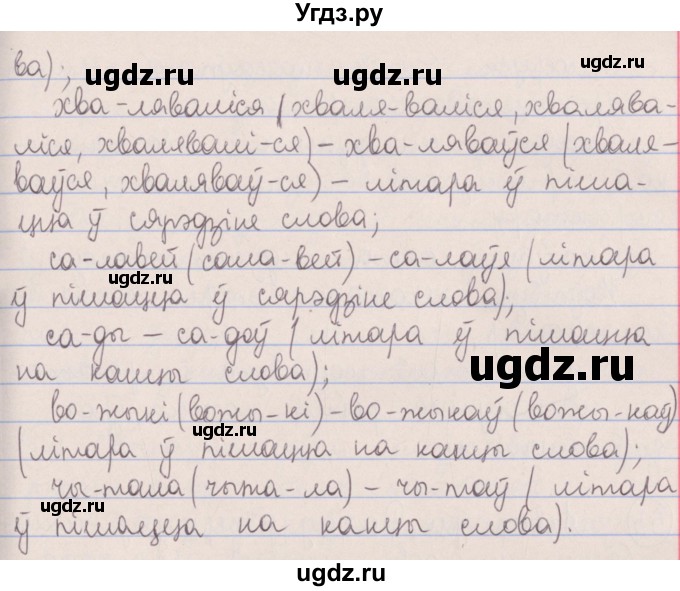 Угдз.ру
ва);
хва-ляваліся (хваля-валіся, хвалява-
ліся, хвалявалі-ся) – хва-ляваўся (хваля-
ваўся, хваляваў-ся) – літара ў піша-
цца ў сярэдзіне слова;
са-лавей (сала-вей) – са-лаўя (літара
ў пішацца ў сярэдзіне слова);
са-ды – са-доў (літара ў пішацца
на канцы слова);
во-жыкі (вожы-кі) – во-жыкаў (вожы-каў)
(літара ў пішацца на канцы слова);
чы-тала (чыта-ла) – чы-таў (літара
ў пішацца на канцы слова).
ugdz.ru
ugdz.ru
ugdz.ru
ugdz.ru
ugdz.ru
ugdz.ru
ugdz.ru
ugdz.ru
ugdz.ru